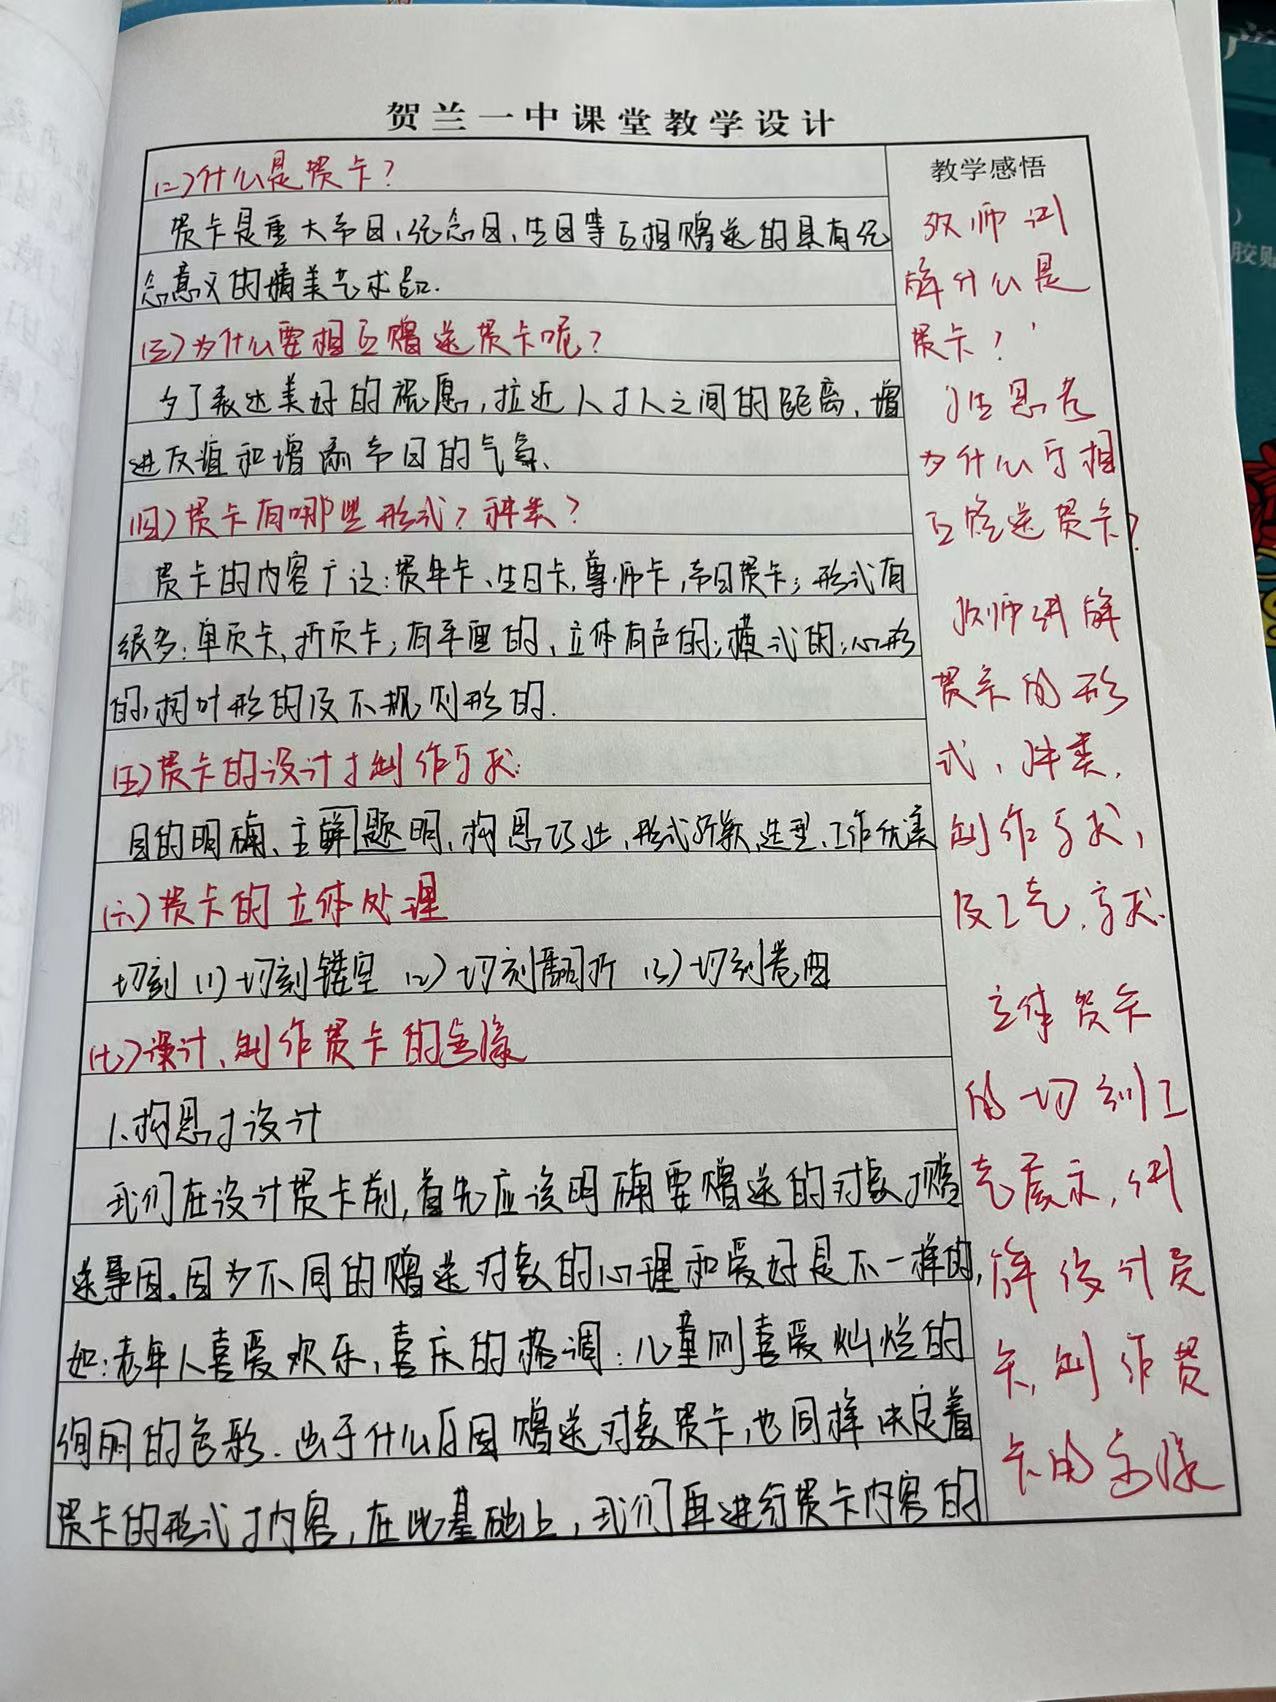 贺兰一中课堂教学设计
(二)什么是贺卡?
贺卡是重大节日、纪念日、生日等互相赠送的具有纪
念意义的精美艺术品.
(三)为什么要相互赠送贺卡呢?
为了表达美好的祝愿,拉近人与人之间的距离,增
进友谊和增添节日的气氛、
(四)贺卡有哪些形式?种类?
贺卡的内容广泛:贺年卡、生日卡、尊师卡,节日贺卡;形式有
很多:单页卡、折页卡;有平面的、立体有声的;横式的;心形
的,树叶形的及不规则形的.
(五)贺卡的设计与制作要求:
目的明确、主题鲜明、构思巧妙,形式新颖,造型、工作优美
(六)贺卡的立体处理
切刻 (1)切刻镂空 (2)切刻翻折 (3)切刻卷曲
(七)设计、制作贺卡的步骤
1.构思与设计
我们在设计贺卡前,首先应该明确要赠送的对象与赠
送事因。因为不同的赠送对象的心理和爱好是不一样的,
如:老年人喜爱欢乐,喜庆的格调;儿童则喜爱灿烂的
绚丽的色彩.出于什么原因赠送对象贺卡,也同样决定着
贺卡的形式与内容,在此基础上,我们再进行贺卡内容的
教学感悟
教师讲
解什么是
贺卡?
学生思考
为什么要相
互赠送贺卡?
教师讲解
贺卡的形
式、种类,
制作要求,
及工艺、要求.
立体贺卡
的切刻工
艺展示,讲
解设计贺
卡,制作贺
卡的步骤